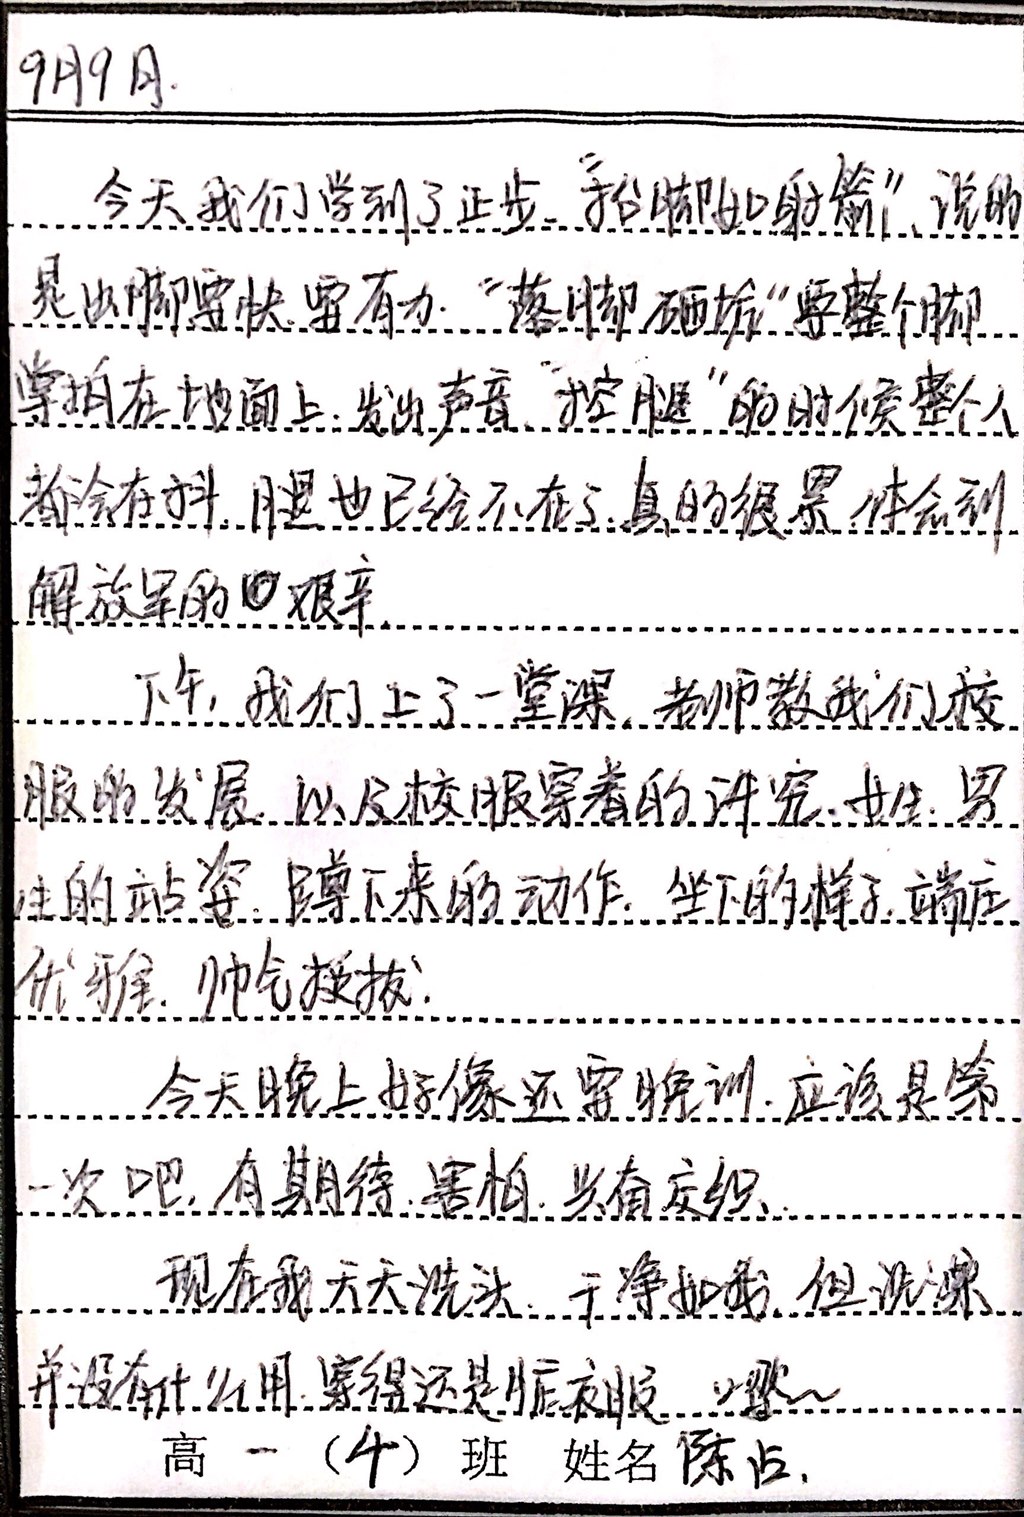 9月9日.
今天我们学到了正步."抬脚如射箭",说的
是出脚要快.要有力."落脚砸坑"要整个脚
掌拍在地面上.发出声音."控腿"的时候整个人
都会在抖.腿也已经不在了.真的很累.体会到
解放军的艰辛.
下午,我们上了一堂课.老师教我们校
服的发展.以及校服穿着的讲究.女生.男
生的站姿.蹲下来的动作.坐下的样子.端庄
优雅.帅气挺拔.
今天晚上好像还要晚训.应该是第
一次吧.有期待.害怕.兴奋交织.
现在我天天洗头.干净如我.但洗澡
并没有什么用.穿得还是脏衣服.
高一(4)班 姓名陈占.